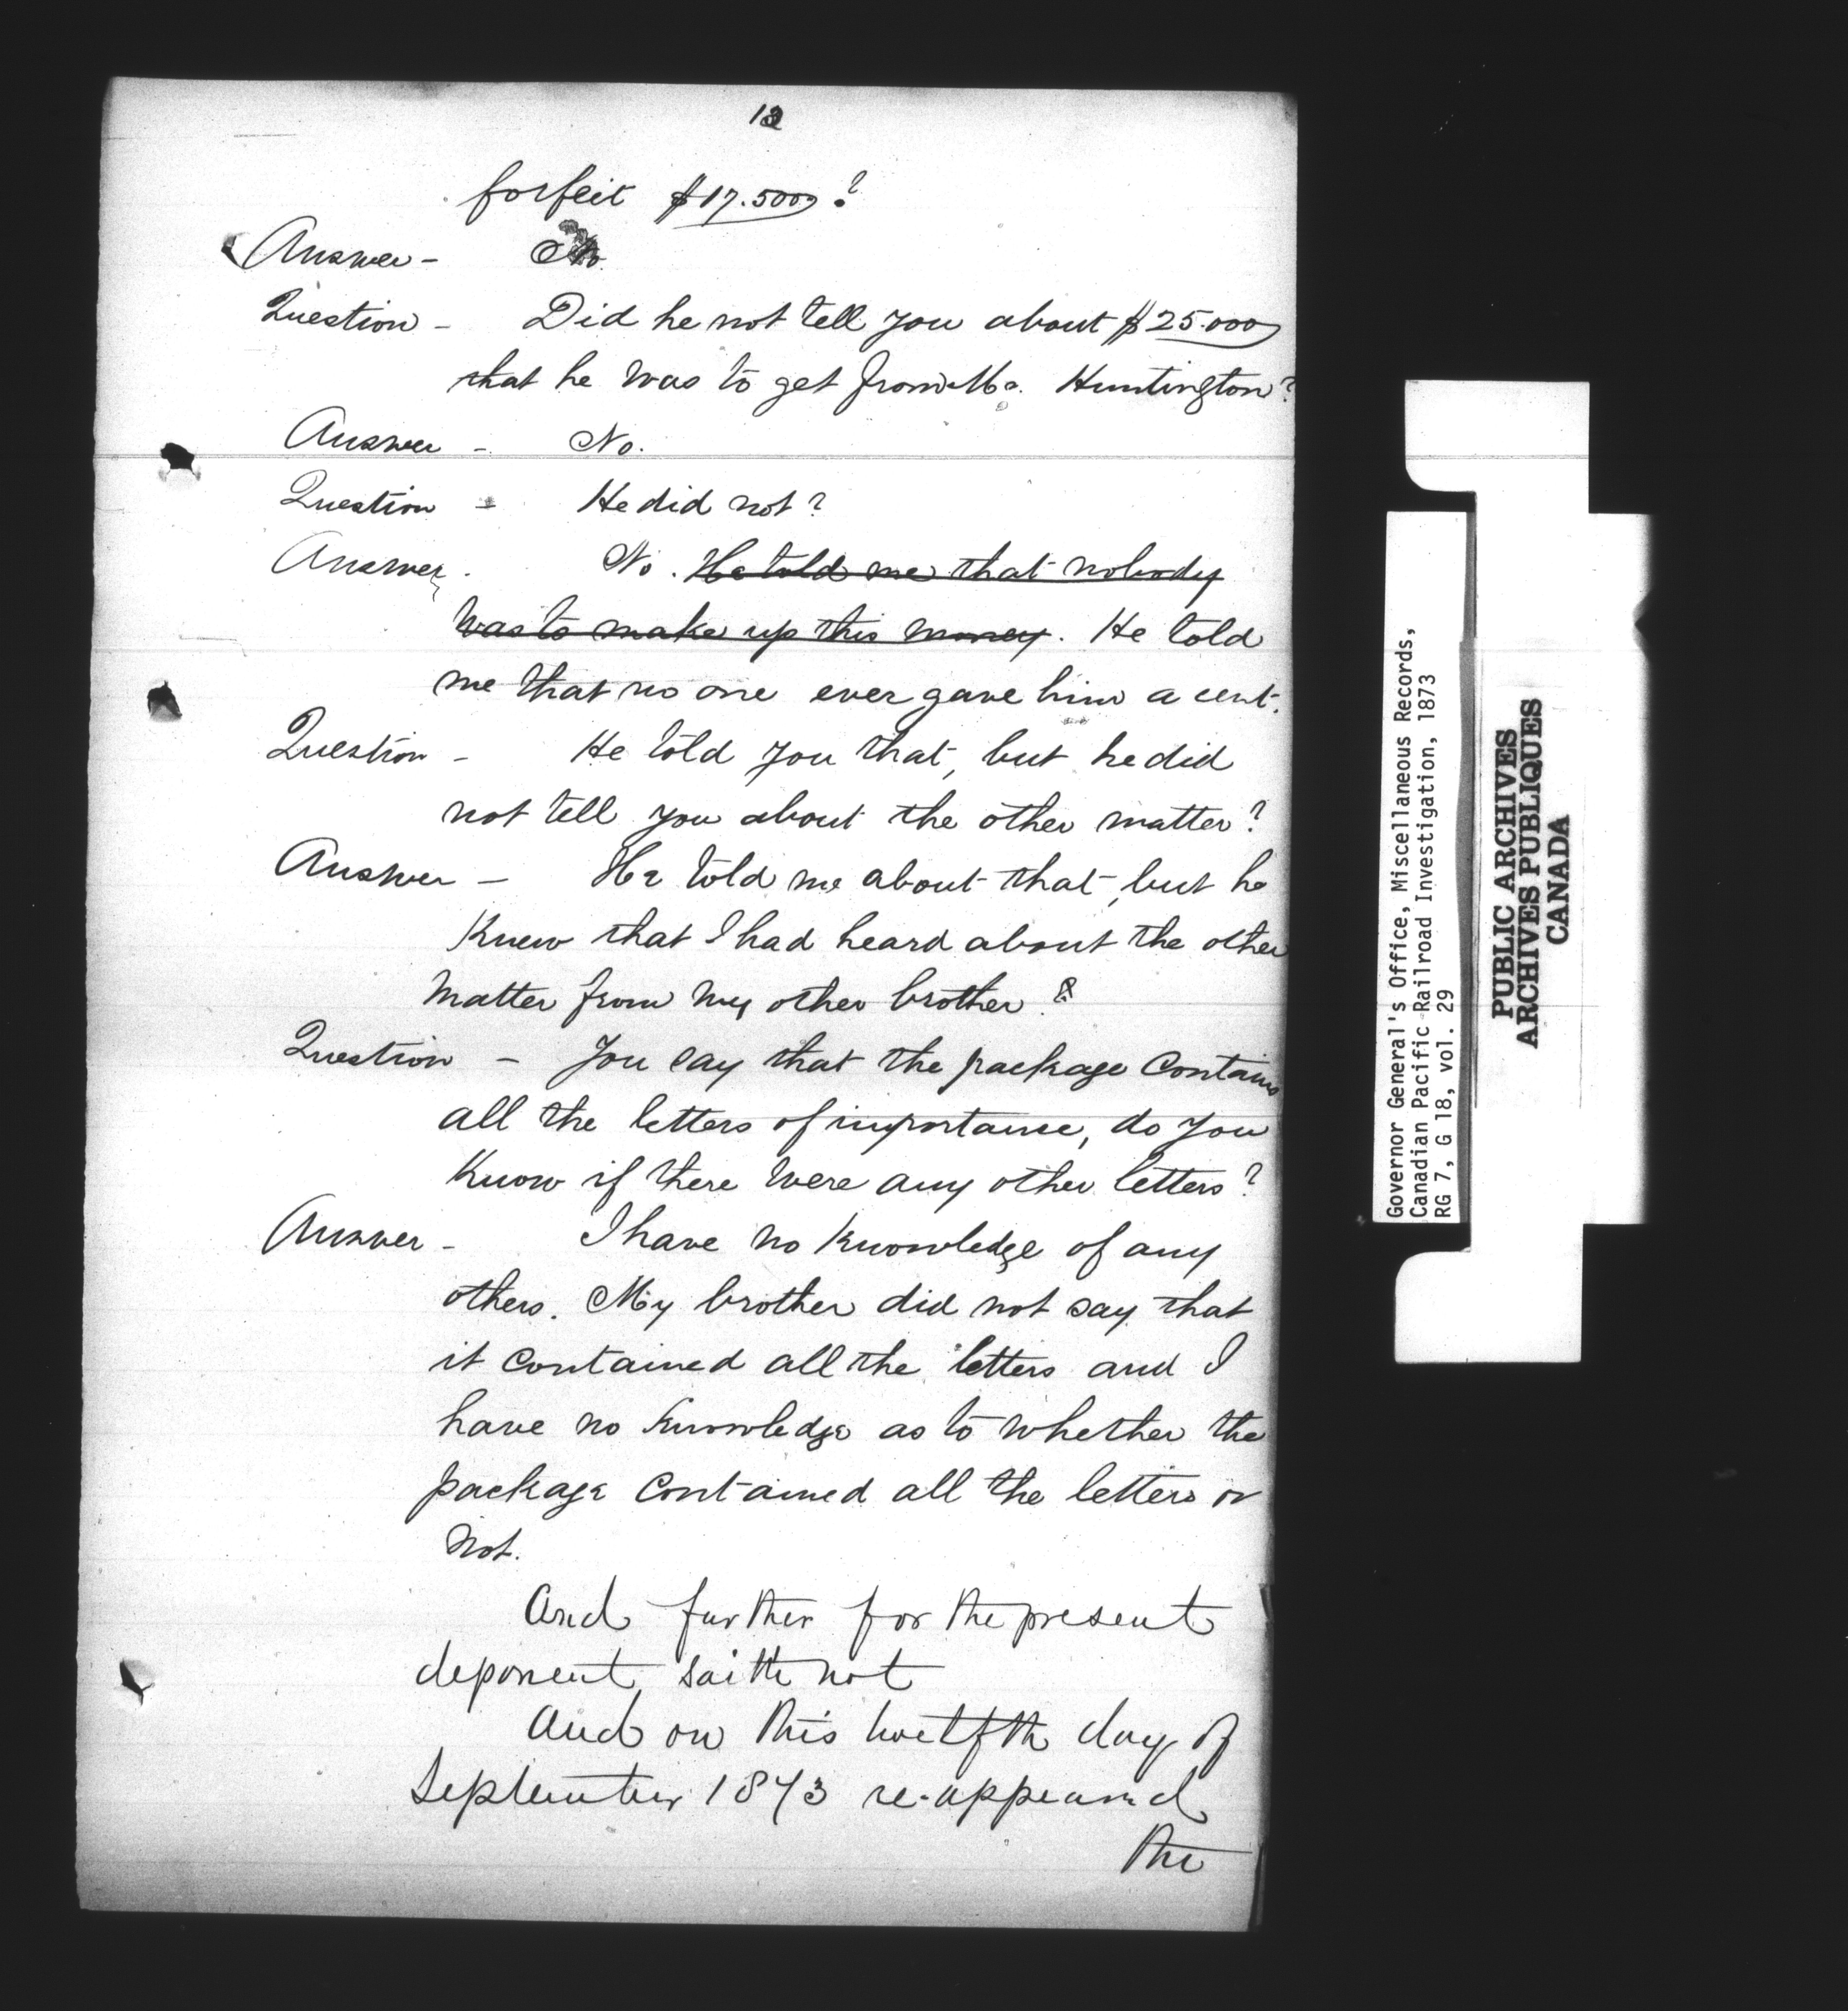 forfeit $17.500?
Answer - No.
Question - Did he not tell you about $25.000
that he was to get from Mr. Huntington?
Answer - No.
Question - He did not?
Answer. No. He told me that nobody
was to make up this money. He told
me that no one ever gave him a cent.
Question - He told you that, but he did
not tell you about the other matter?
Answer - He told me about that, but he
Knew that I had heard about the other
matter from my other brother.
Question - You say that the package contains
all the letters of importance, do you
Know if there were any other letters?
Answer - I have no Knowledge of any
others. My brother did not say that
it contained all the letters and I
have no Knowledge as to whether the
package contained all the letters or
not.
And further for the present
deponent saith not
And on this twelfth day of
September 1873 re-appeared
the
Governor General's Office, Miscellaneous Records,
Canadian Pacific Railroad Investigation, 1873
RG 7, G 18, vol. 29
PUBLIC ARCHIVES
ARCHIVES PUBLIQUES
CANADA